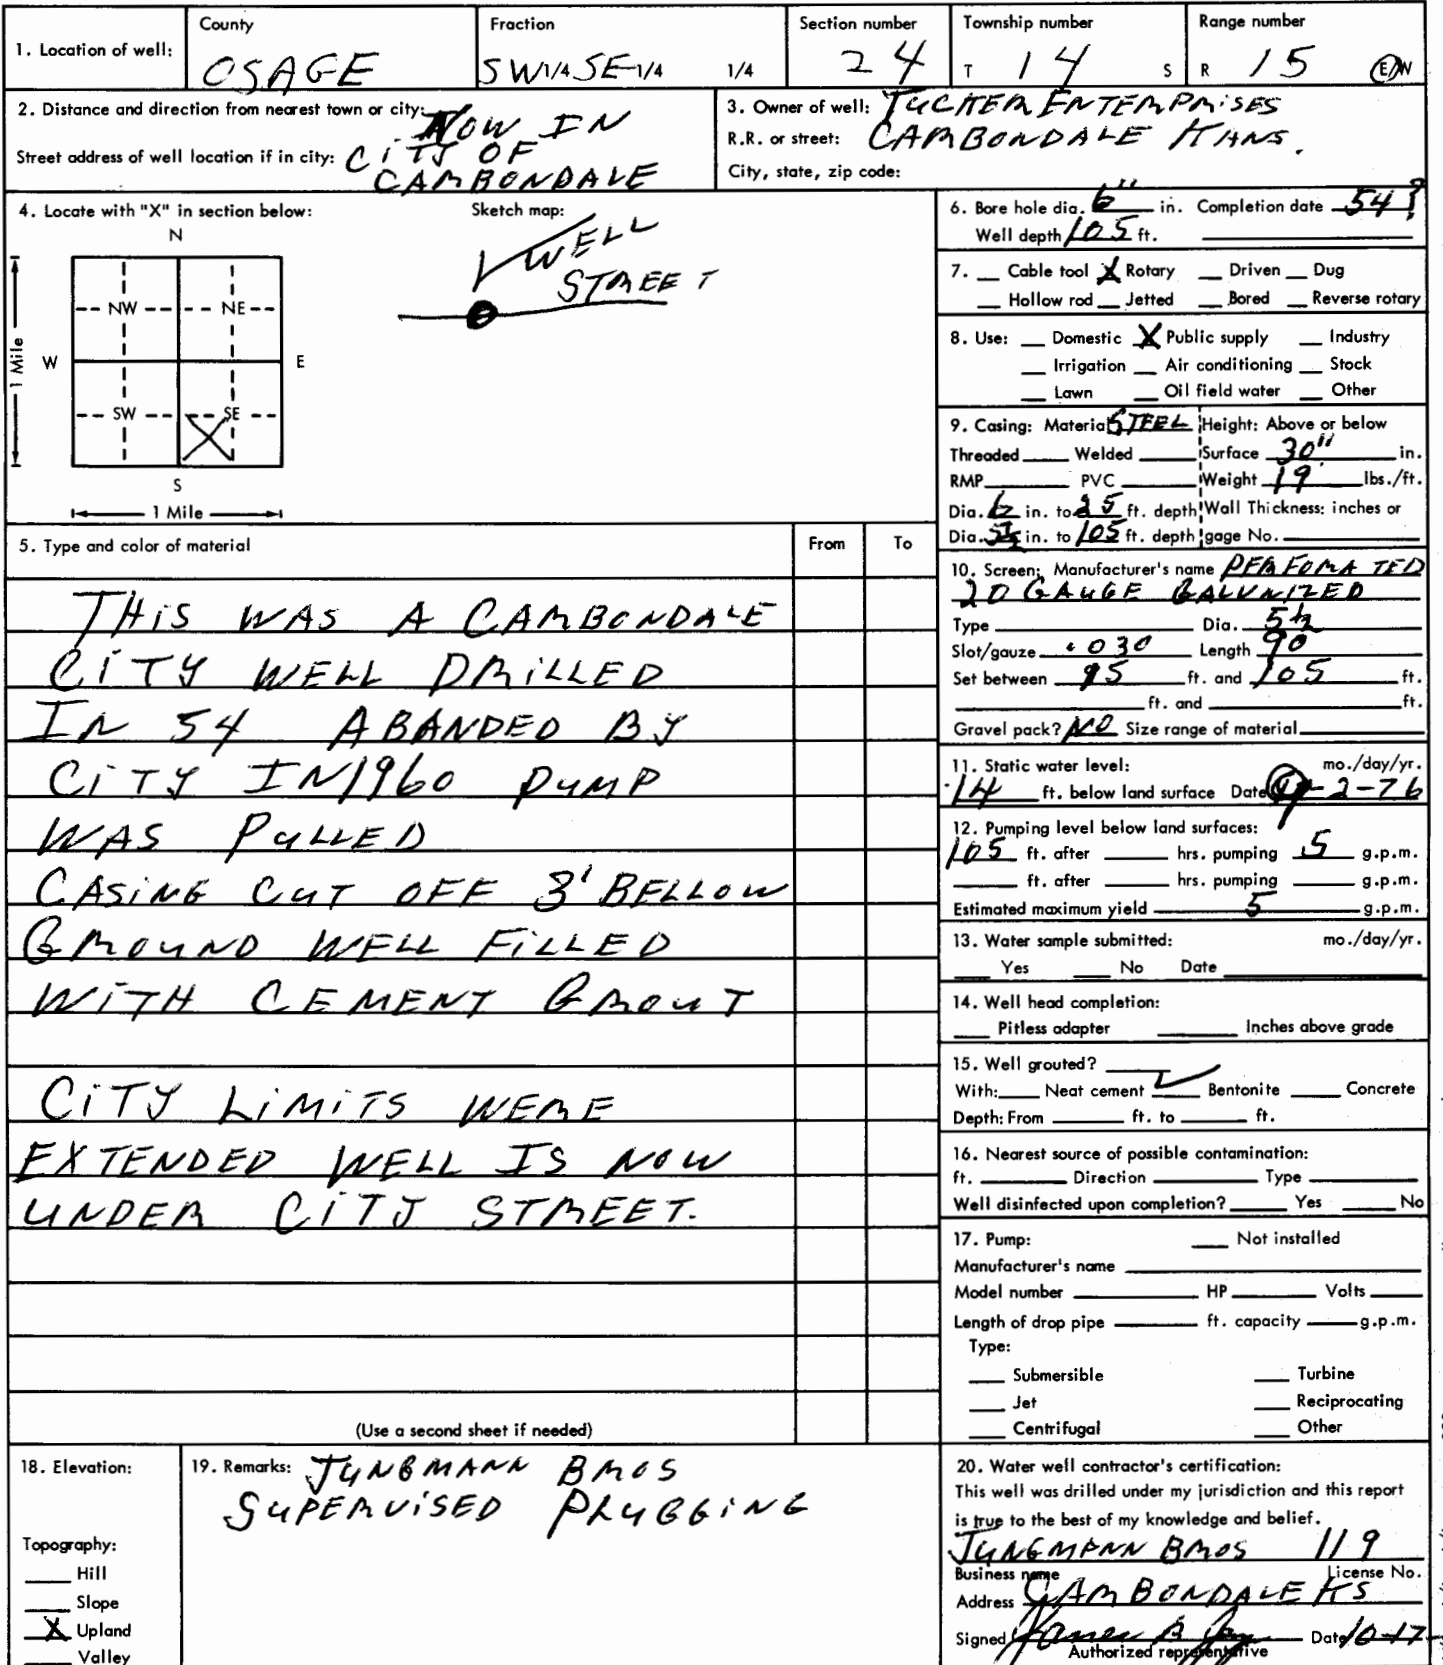 1. Location of well: County OSAGE Fraction SW 1/4 SE 1/4 1/4 Section number 24 Township number T 14 S Range number R 15 E/W
2. Distance and direction from nearest town or city: NOW IN
Street address of well location if in city: CITY OF
CARBONDALE
3. Owner of well: TUCKER ENTERPRISES
R.R. or street: CARBONDALE KANS.
City, state, zip code:
4. Locate with "X" in section below:
N
NW NE
W E
1 Mile
SW SE
X
S
1 Mile
Sketch map:
WELL
STREET
5. Type and color of material From To
THIS WAS A CARBONDALE
CITY WELL DRILLED
IN 54 ABANDED BY
CITY IN 1960 PUMP
WAS PULLED
CASING CUT OFF 3' BELLOW
GROUND WELL FILLED
WITH CEMENT GROUT
CITY LIMITS WERE
EXTENDED WELL IS NOW
UNDER CITY STREET.
(Use a second sheet if needed)
6. Bore hole dia. 6" in. Completion date 54?
Well depth 105 ft.
7. Cable tool X Rotary Driven Dug
Hollow rod Jetted Bored Reverse rotary
8. Use: Domestic X Public supply Industry
Irrigation Air conditioning Stock
Lawn Oil field water Other
9. Casing: Material STEEL Height: Above or below
Threaded Welded Surface 30" in.
RMP PVC Weight 19 lbs./ft.
Dia. in. to ft. depth Wall Thickness: inches or
Dia. 5½ in. to 105 ft. depth gage No.
10. Screen: Manufacturer's name PERFORATED
20 GAUGE GALVNIZED
Type Dia. 5½
Slot/gauze .030 Length 90
Set between ft. and 105 ft.
ft. and ft.
Gravel pack? NO Size range of material
11. Static water level: mo./day/yr.
14 ft. below land surface Date 9-2-76
12. Pumping level below land surfaces:
105 ft. after hrs. pumping 5 g.p.m.
ft. after hrs. pumping g.p.m.
Estimated maximum yield 5 g.p.m.
13. Water sample submitted: mo./day/yr.
Yes No Date
14. Well head completion:
Pitless adapter Inches above grade
15. Well grouted?
With: Neat cement ✓ Bentonite Concrete
Depth: From ft. to ft.
16. Nearest source of possible contamination:
ft. Direction Type
Well disinfected upon completion? Yes No
17. Pump: Not installed
Manufacturer's name
Model number HP Volts
Length of drop pipe ft. capacity g.p.m.
Type:
Submersible Turbine
Jet Reciprocating
Centrifugal Other
18. Elevation:
Topography:
Hill
Slope
X Upland
Valley
19. Remarks: JUNGMANN BROS
SUPERVISED PLUGGING
20. Water well contractor's certification:
This well was drilled under my jurisdiction and this report
is true to the best of my knowledge and belief.
JUNGMANN BROS 119
Business name License No.
Address CARBONDALE KS
Signed Date 10-17
Authorized representative